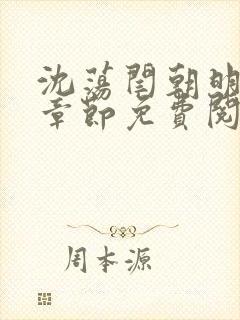 沈蕩閏朝明
章節免費閱
周本源